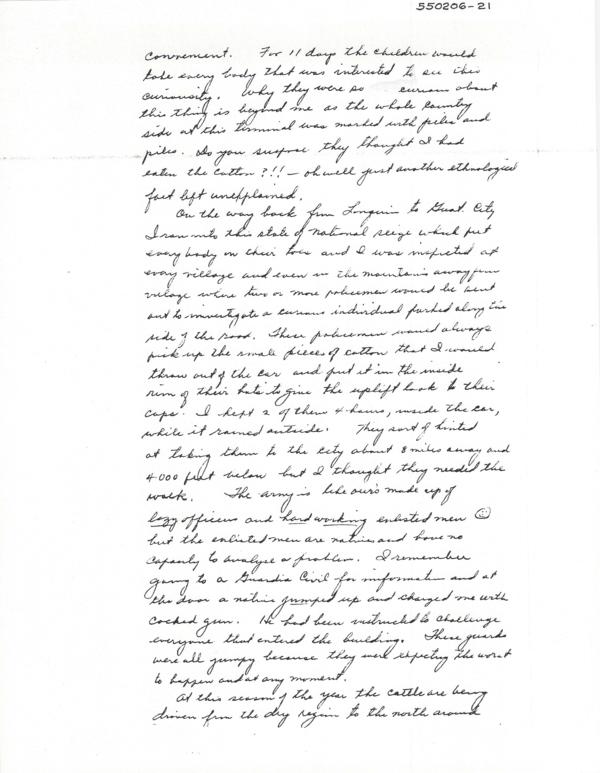 550206-21
convenement. For 11 days the children would
take every body that was interested to see this
curiousity. Why they were so curious about
this thing is beyond me as the whole country
side at this terminal was marked with piles and
piles. Do you suspose they thought I had
eaten the cotton?!! – oh well just another ethnological
fact left unexplained.
On the way back from Lonquin to Guat. City
I ran into this state of national seize which put
every body on their toes and I was inspected at
every village and even in the mountains away from
village where two or more policemen would be sent
out to investigate a curious individual parked along the
side of the road. These policemen would always
pick up the small pieces of cotton that I would
throw out of the car and put it in the inside
rim of their hats to give the uplift look to their
caps. I kept 2 of them 4-hours, inside the car,
while it rained outside. They sort of hinted
at taking them to the city about 8 miles away and
4000 feet below but I thought they needed the
walk. The army is like ours made up of
lazy officers and hard working enlisted men ☺
but the enlisted men are natives and have no
capacity to analyse a problem. I remember
going to a Guardia Civil for information and at
the door a native jumped up and charged me with
cocked gun. He had been instructed to challenge
everyone that entered the building. These guards
were all jumpy because they were expecting the worst
to happen and at any moment.
At this season of the year the cattle are being
driven from the dry region to the north around